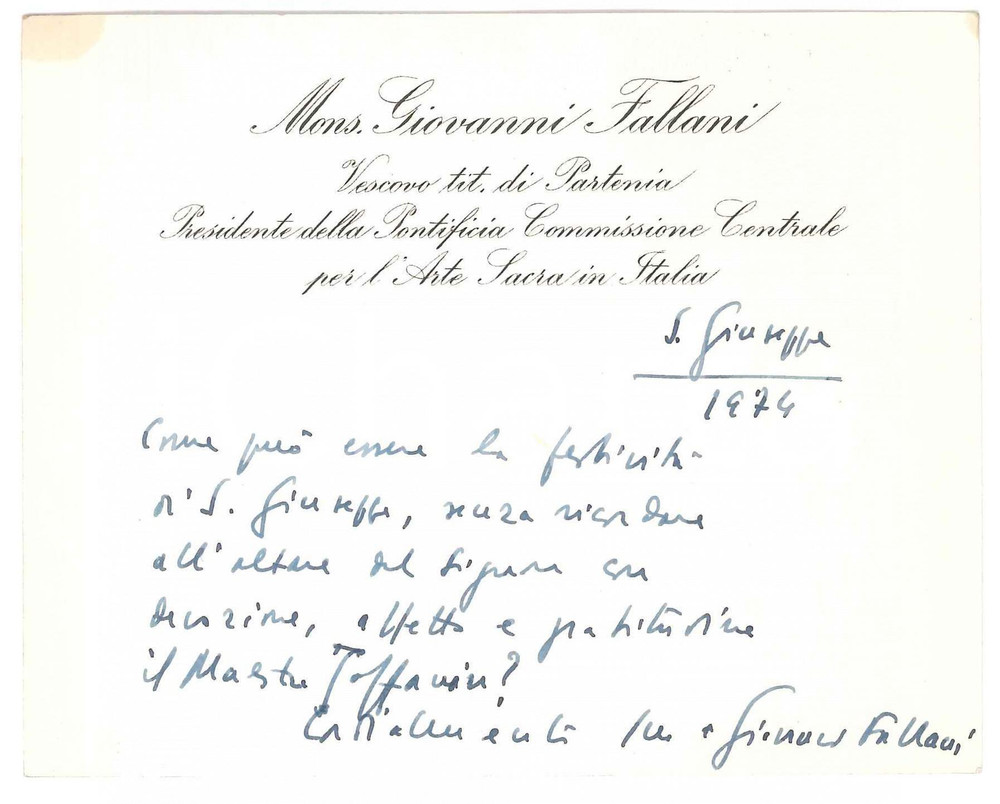 Mons. Giovanni Fallani
Vescovo tit. di Partenia
Presidente della Pontificia Commissione Centrale
per l'Arte Sacra in Italia
S. Giuseppe
1974
Come può essere la festività
di S. Giuseppe, senza ricordare
all'altare del Signore con
devozione, affetto e gratitudine
il Maestro Toffanin?
Cordialmente + Giovanni Fallani